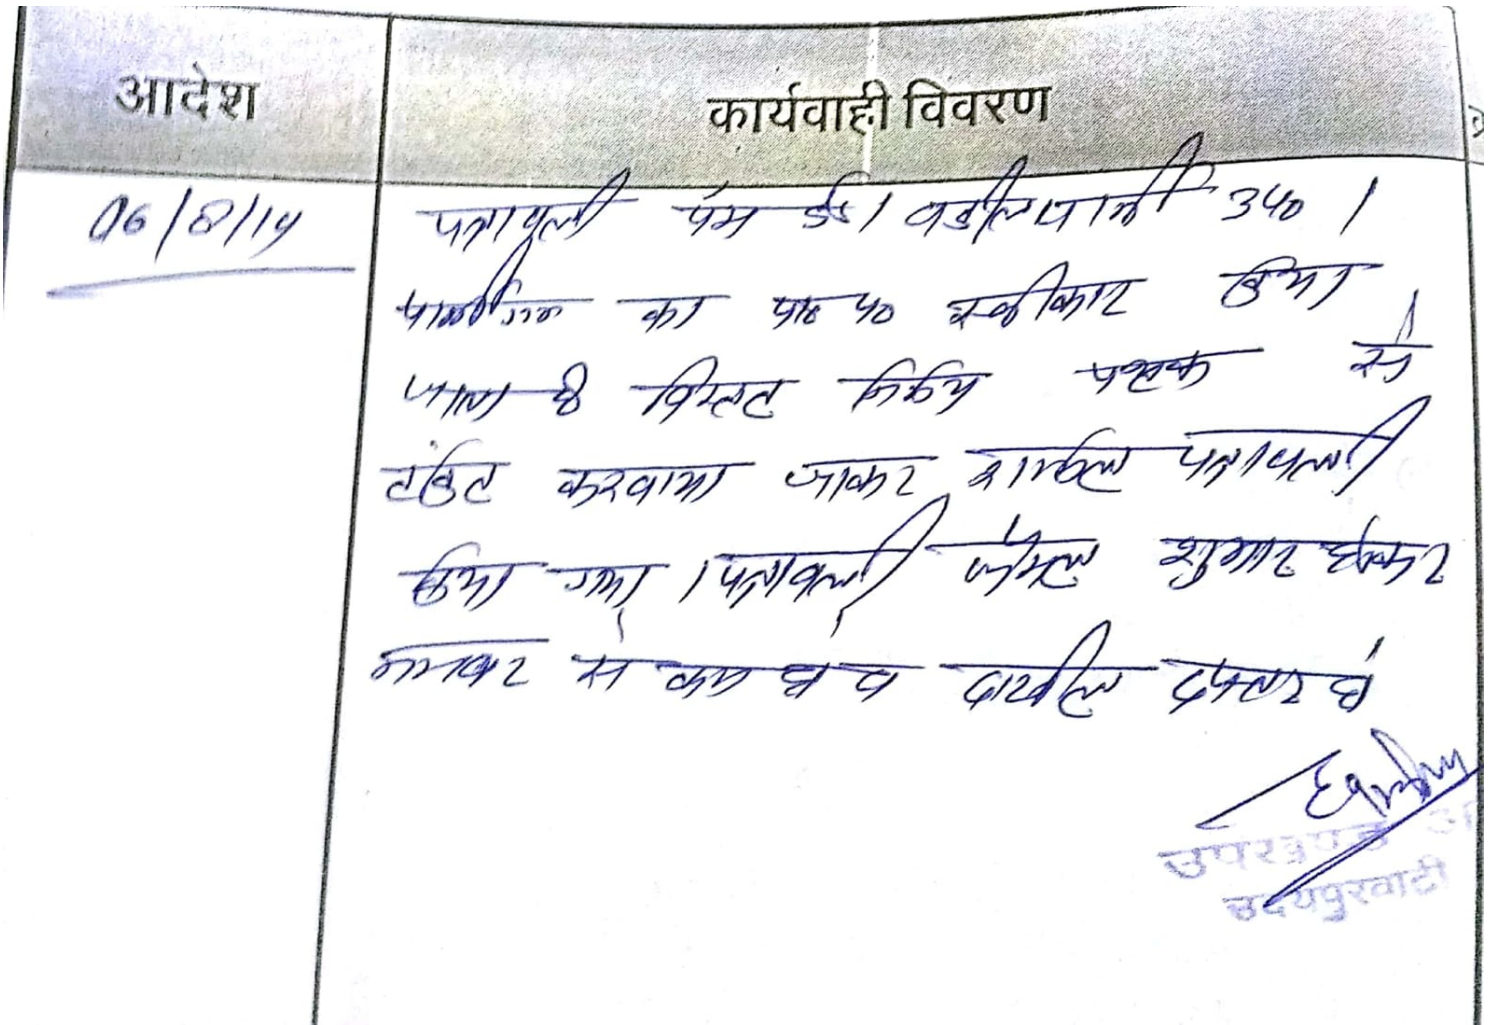 आदेश
कार्यवाही विवरण
06/8/19
पत्रावली पेश हुई। वकील प्रार्थी उप०।
प्रार्थीगण का प्रा० प० स्वीकार किया
जाता है विस्तृत निर्णय पृथक से
टंकित करवाया जाकर शामिल पत्रावली
किया गया। पत्रावली फैसल शुमार होकर
नम्बर से कम हो व दाखिल दफ्तर हो
उपखण्ड अ
उदयपुरवाटी